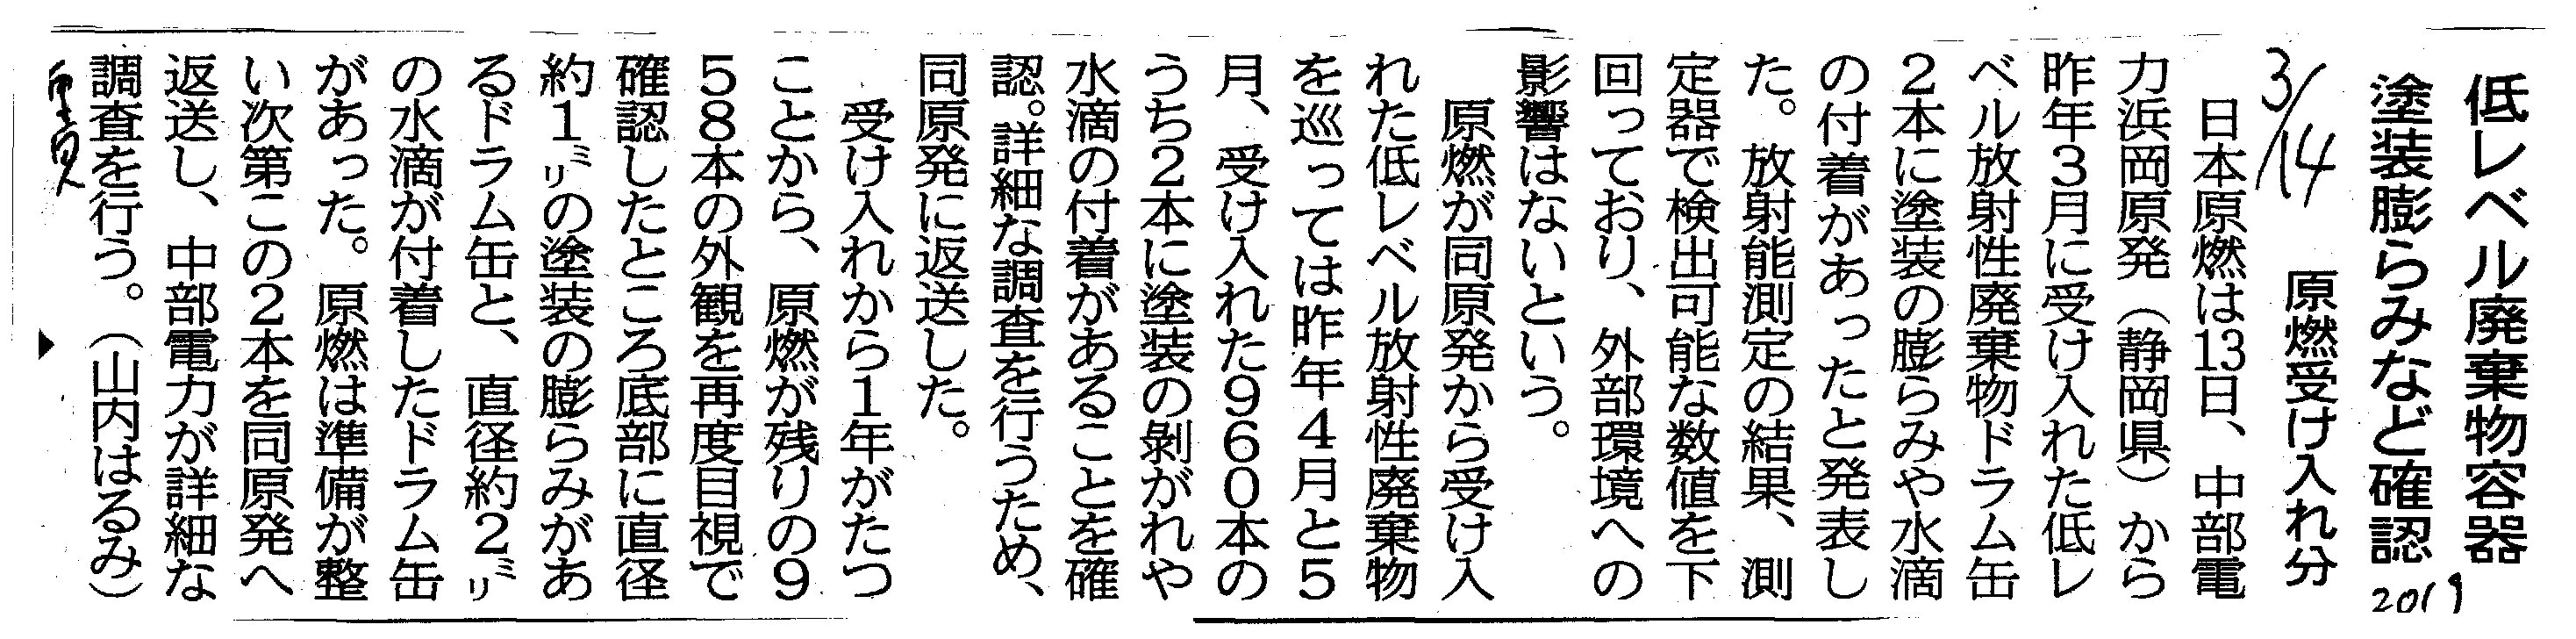 低レベル廃棄物容器
塗装膨らみなど確認
2019
3/14
原燃受け入れ分
日本原燃は13日、中部電
力浜岡原発(静岡県)から
昨年3月に受け入れた低レ
ベル放射性廃棄物ドラム缶
2本に塗装の膨らみや水滴
の付着があったと発表し
た。放射能測定の結果、測
定器で検出可能な数値を下
回っており、外部環境への
影響はないという。
原燃が同原発から受け入
れた低レベル放射性廃棄物
を巡っては昨年4月と5
月、受け入れた960本の
うち2本に塗装の剝がれや
水滴の付着があることを確
認。詳細な調査を行うため、
同原発に返送した。
受け入れから1年がたつ
ことから、原燃が残りの9
58本の外観を再度目視で
確認したところ底部に直径
約1㍉の塗装の膨らみがあ
るドラム缶と、直径約2㍉
の水滴が付着したドラム缶
があった。原燃は準備が整
い次第この2本を同原発へ
返送し、中部電力が詳細な
調査を行う。(山内はるみ)